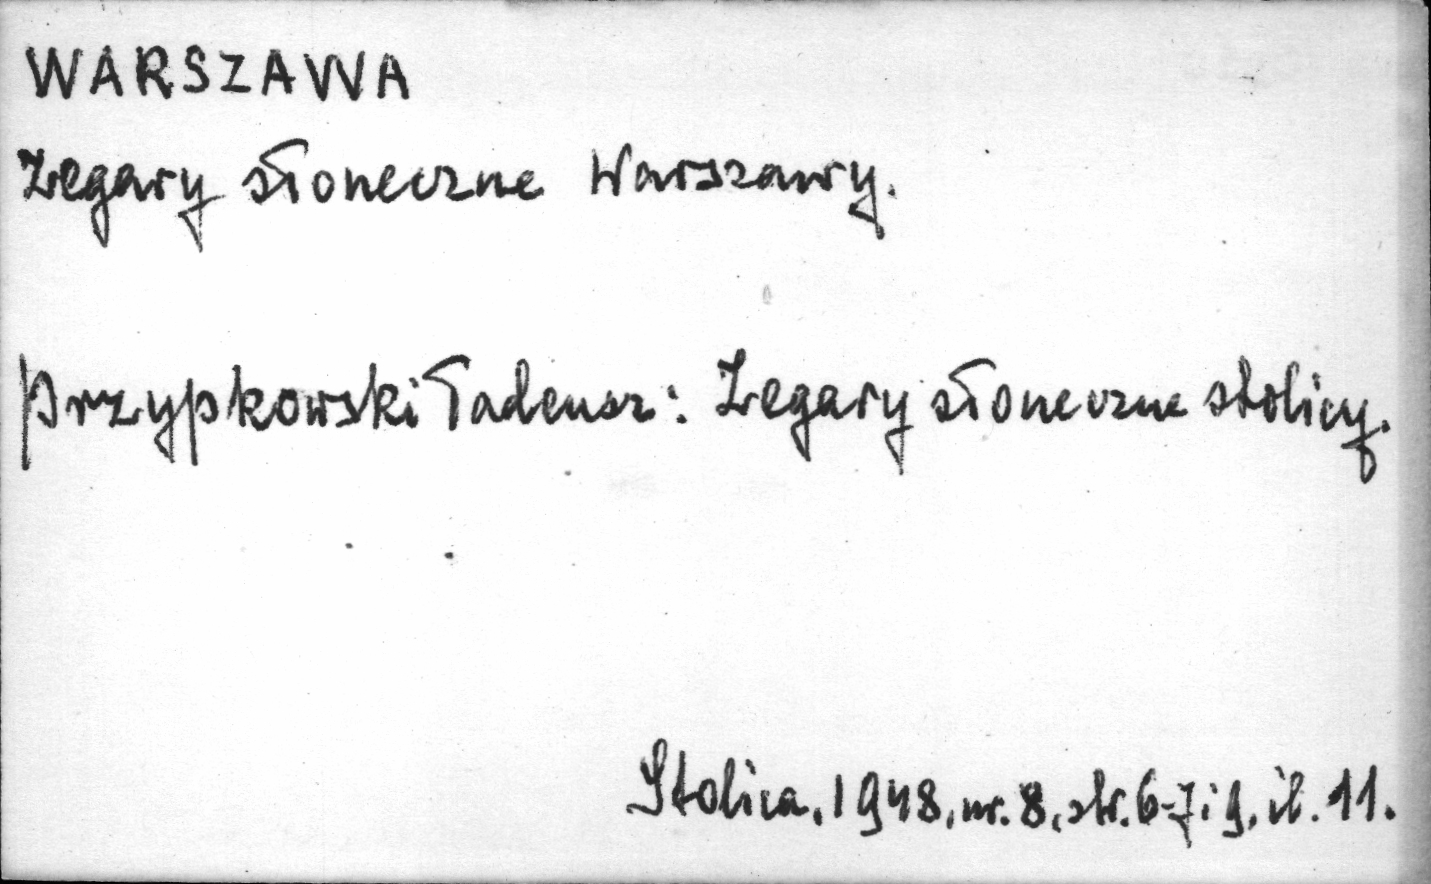 WARSZAWA
Zegary słoneczne Warszawy.
Przypkowski Tadeusz: Zegary słoneczne stolicy.
Stolica, 1948, nr. 8, str. 6-7 i 9, il. 11.